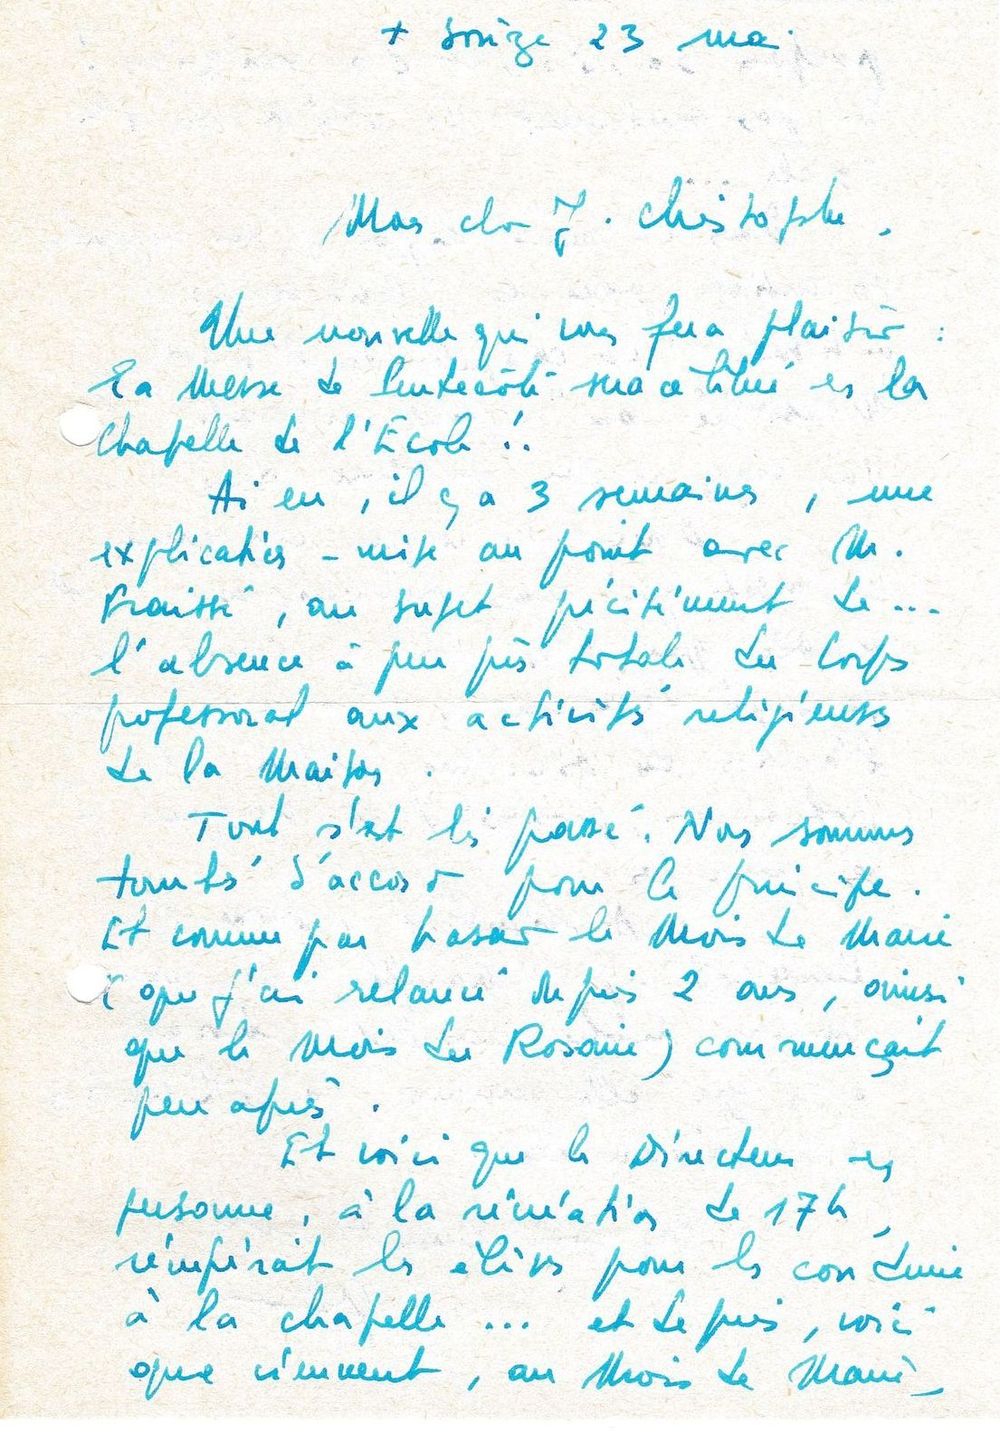 + Sorèze 23 mai
Mon cher J. Christophe,
Une nouvelle qui vous fera plaisir :
La Messe de Pentecôte sera célébrée en la
Chapelle de l'École !.
Ai eu, il y a 3 semaines, une
explication - mise au point avec M.
Fraissé, au sujet précisément de ...
l'absence à peu près totale du Corps
professoral aux activités religieuses
de la Maison.
Tout s'est bien passé. Nous sommes
tombés d'accord pour le principe.
Et comme par hasard le Mois de Marie
(que j'ai relancé depuis 2 ans, ainsi
que le Mois du Rosaire) commençait
peu après.
Et voici que le Directeur en
personne, à la récréation de 17h,
récupérait les élèves pour les conduire
à la chapelle ... et depuis, voici
que viennent, au Mois de Marie -